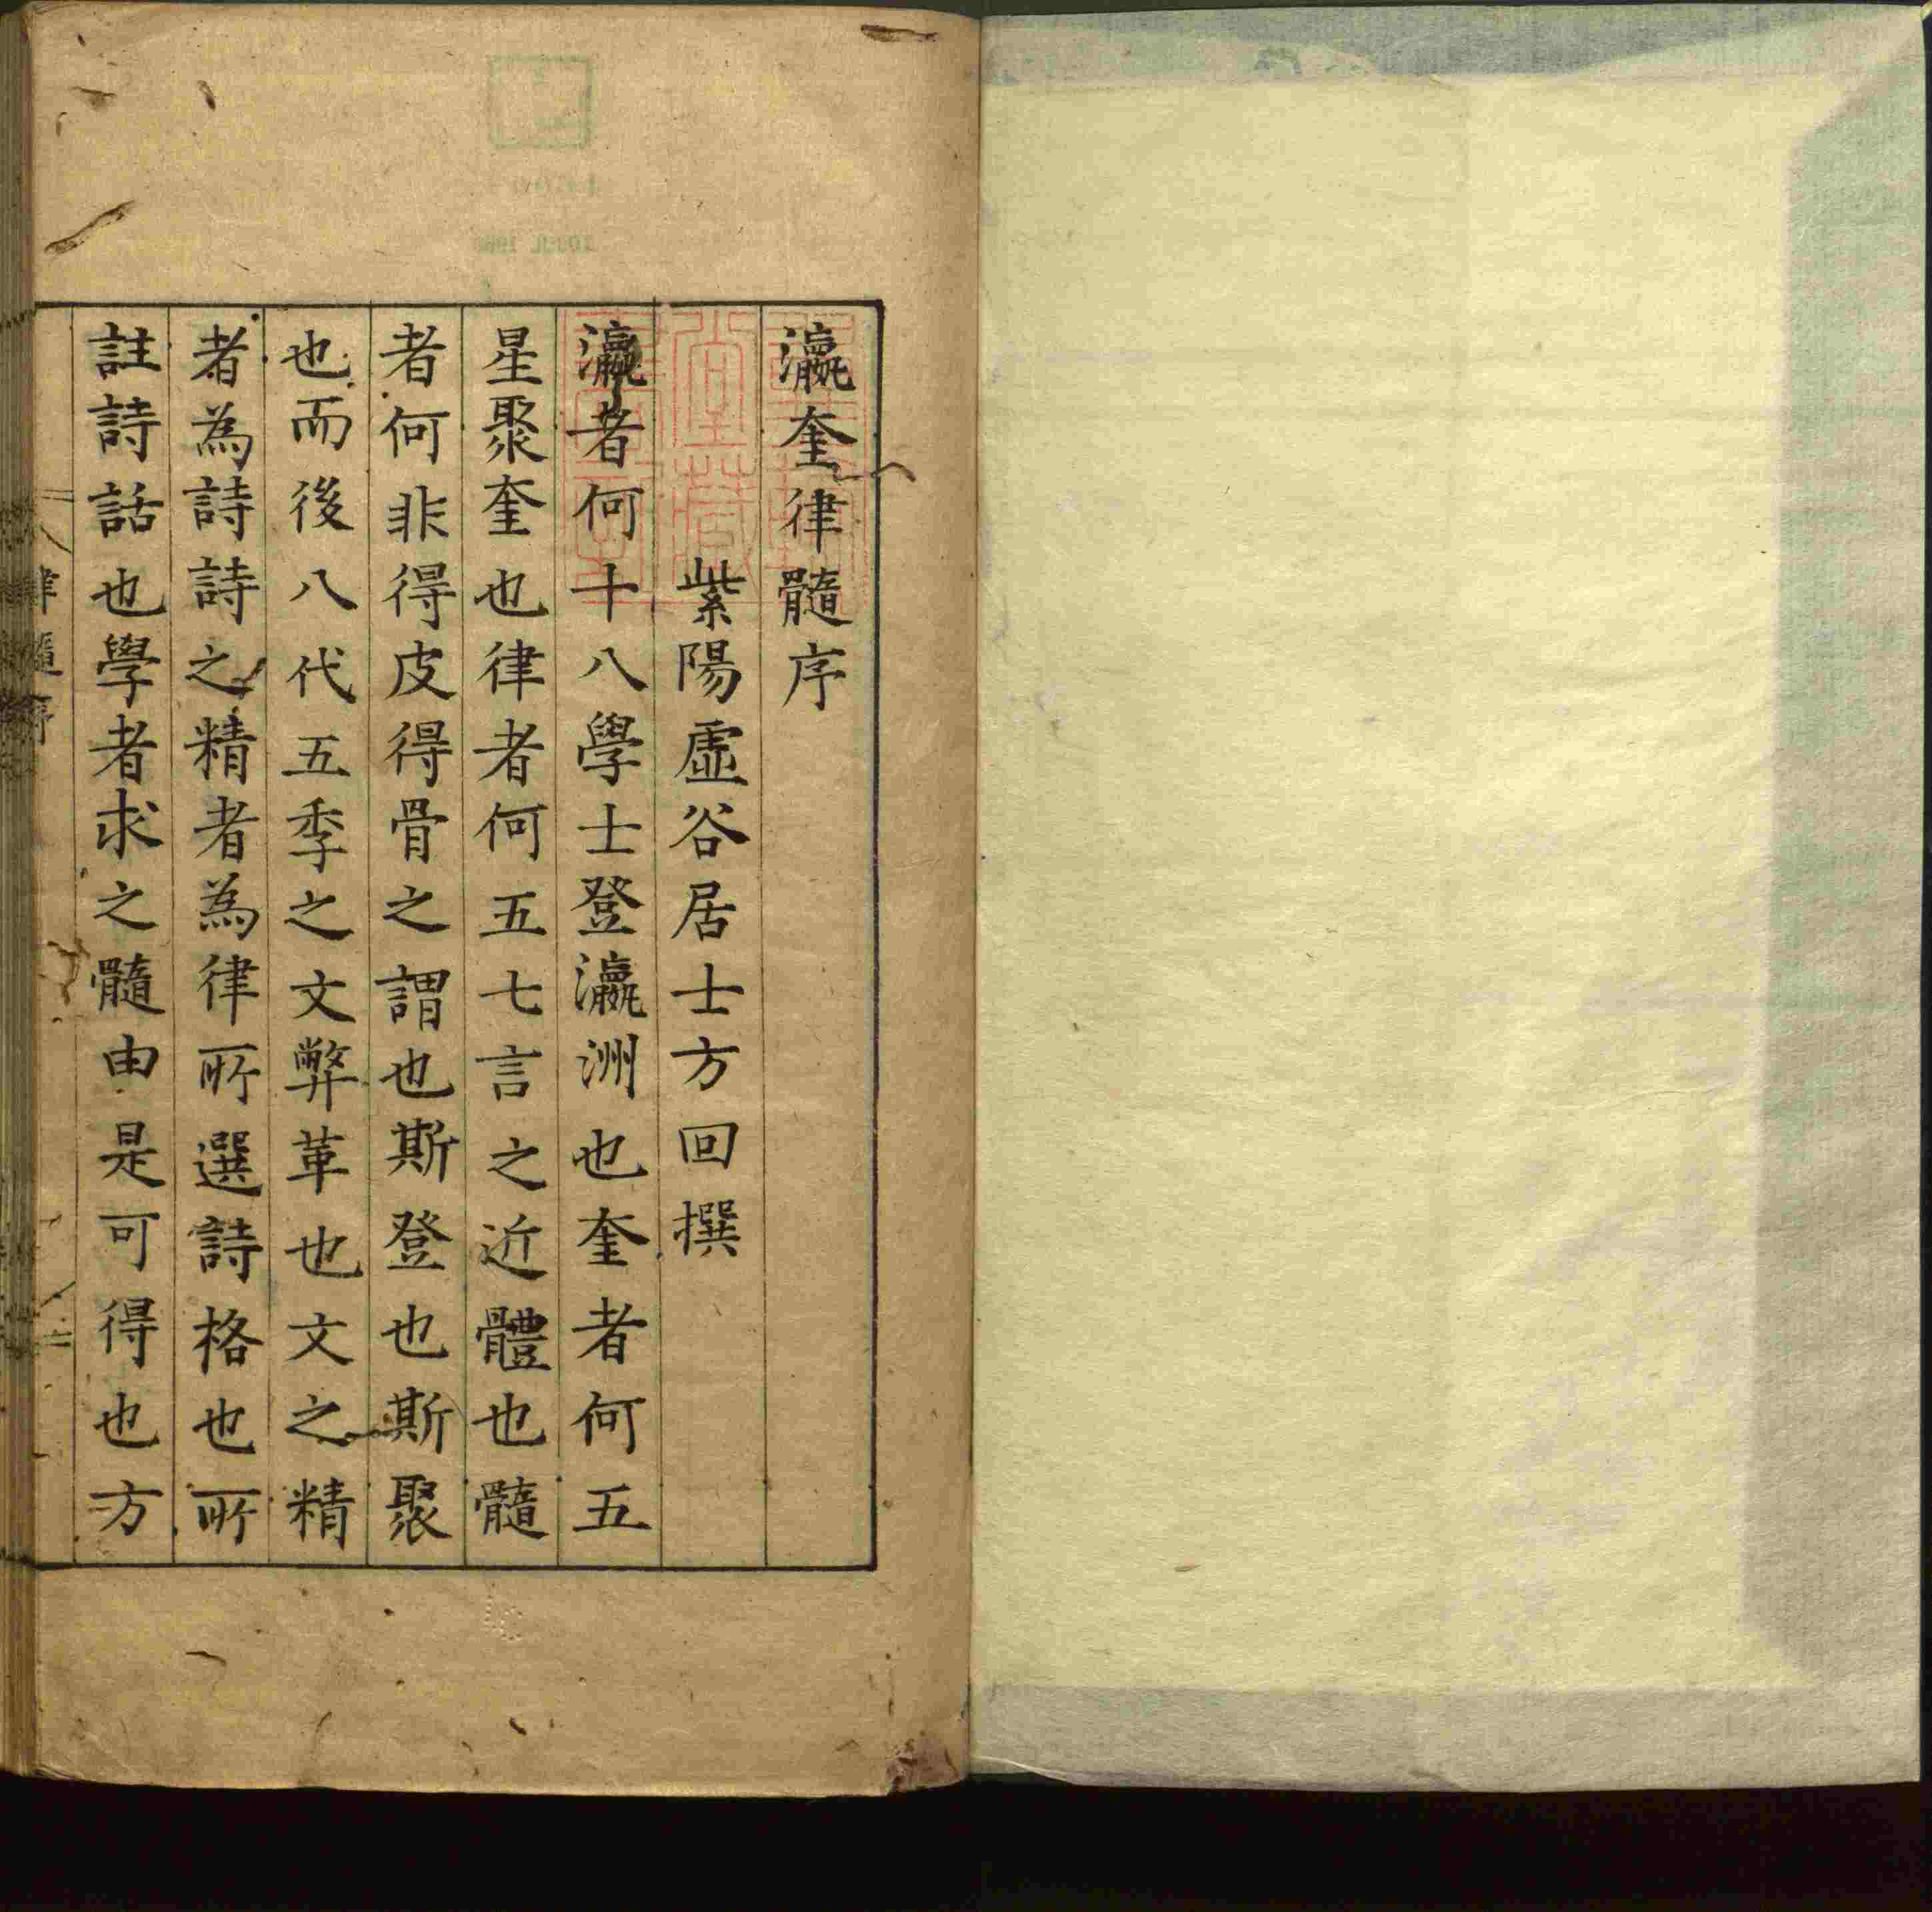 瀛奎律髓序
紫陽虛谷居士方回撰
瀛者何十八學士登瀛洲也奎者何五
星聚奎也律者何五七言之近體也髓
者何非得皮得骨之謂也斯登也斯聚
也而後八代五季之文弊革也文之精
者為詩詩之精者為律所選詩格也所
註詩話也學者求之髓由是可得也方
律髓序